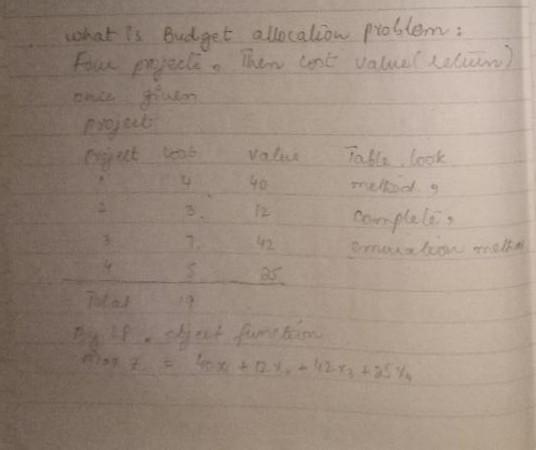 what is Budget allocation problem:
Four projects, Then cost value (return)
once given
project
project cost value Table look
1 4 40 method,
2 3 12 complete,
3 7 42 method
4 5 25
Total 19
By LP. object function
Max Z = 40x1 + 12x2 + 42x3 + 25x4